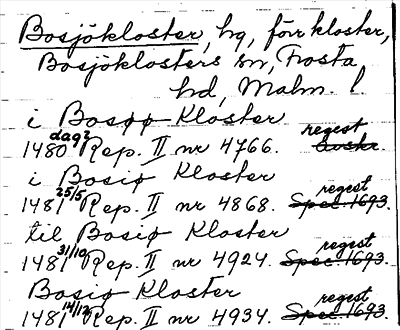 Bosjökloster, hg, förr kloster,
Bosjöklosters sn, Frosta
hd, Malm. l.
i Bosøø Kloster
1480 dag? Rep. II nr 4766. regest Avskr.
i Bosiø Kloster
1481 25/5 Rep. II nr 4868. regest Spec. 1693.
til Bosiø Kloster
1481 31/10 Rep. II nr 4924. regest Spec. 1693.
Bosiø Kloster
1481 14/12 Rep. II nr 4934. regest Spec. 1693.